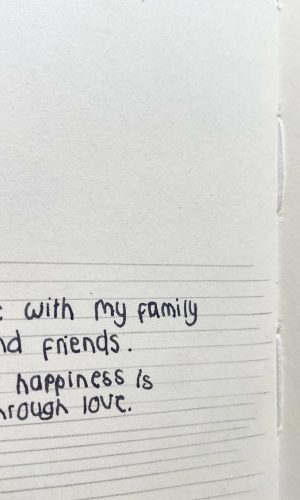 with my family
nd friends.
happiness is
hrough love.